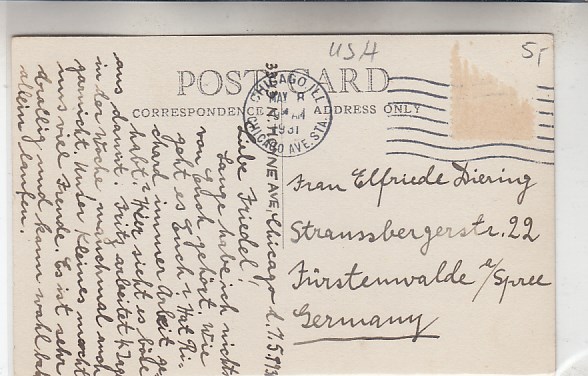 USA
5,-
POST CARD
CORRESPONDENCE
ADDRESS ONLY
CHICAGO, ILL.
MAY 8
AM
1931
CHICAGO AVE. STA.
AVE. Chicago, d. 7.5.193
Liebe Friedel!
Lange habe ich nichts
von Euch gehört. Wie
geht es Euch? Hat Ri-
chard immer Arbeit ge-
habt? Hier sieht es böse
aus damit. Fritz arbeitet
in der Woche, manchmal auch
garnicht. Unser Kleines macht
uns viel Freude. Es ist sehr
drollig und kann wohl bald
allein laufen.
Frau Elfriede Diering
Straussbergerstr. 22
Fürstenwalde a/Spree
Germany